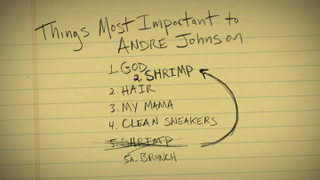 Things Most Important to
ANDRE Johnson
1. GOD
2. SHRIMP
2 HAIR
3. MY MAMA
4. CLEAN SNEAKERS
5. SHRIMP
5a. BRUNCH